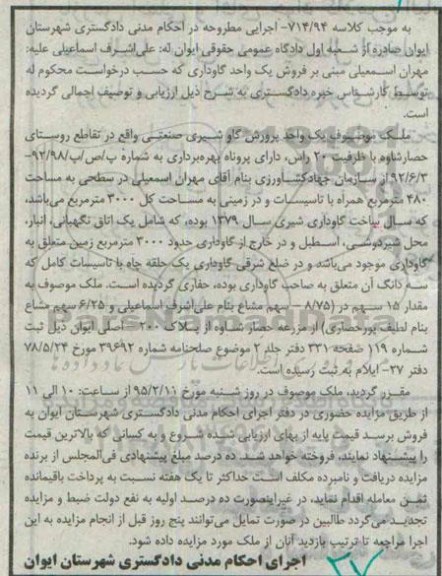 به موجب کلاسه ۷۱۴/۹۴- اجرایی مطروحه در احکام مدنی دادگستری شهرستان
ایوان صادره از شعبه اول دادگاه عمومی حقوقی ایوان له: علی‌اشرف اسماعیلی علیه:
مهران اسمعیلی مبنی بر فروش یک واحد گاوداری که حسب درخواست محکوم له
توسط کارشناس خبره دادگستری به شرح ذیل ارزیابی و توصیف اجمالی گردیده
است.
ملک موصوف یک واحد پرورش گاو شیری صنعتی واقع در تقاطع روستای
حصارشاوه با ظرفیت ۲۰ راس، دارای پروانه بهره‌برداری به شماره پ/ص/ب/۹۲/۹۸-
۹۲/۶/۳ از سازمان جهادکشاورزی بنام آقای مهران اسمعیلی در سطحی به مساحت
۴۸۰ مترمربع همراه با تاسیسات و در زمینی به مساحت کل ۳۰۰۰ مترمربع می‌باشد،
که سال ساخت گاوداری شیری سال ۱۳۷۹ بوده، که شامل یک اتاق نگهبانی، انبار،
محل شیردوشی، اسطبل و در خارج از گاوداری حدود ۳۰۰۰ مترمربع زمین متعلق به
گاوداری موجود می‌باشد و در ضلع شرقی گاوداری یک حلقه چاه با تاسیسات کامل که
سه دانگ آن متعلق به صاحب گاوداری بوده، حفاری گردیده است. ملک موصوف به
مقدار ۱۵ سهم در (۸/۷۵- سهم مشاع بنام علی‌اشرف اسماعیلی و ۶/۲۵ سهم مشاع
بنام لطیف پورحصاری) از مزرعه حصار شاوه از پلاک ۲۰۰- اصلی ایوان ذیل ثبت
شماره ۱۱۹ صفحه ۳۳۱ دفتر جلد ۲ موضوع صلحنامه شماره ۳۹۶۹۲ مورخ ۷۸/۵/۲۴
دفتر ۲۷- ایلام به ثبت رسیده است.
مقرر گردید، ملک موصوف در روز شنبه مورخ ۹۵/۲/۱۱ از ساعت: ۱۰ الی ۱۱
از طریق مزایده حضوری در دفتر اجرای احکام مدنی دادگستری شهرستان ایوان به
فروش برسد قیمت پایه از بهای ارزیابی شده شروع و به کسانی که بالاترین قیمت
را پیشنهاد نمایند، فروخته خواهد شد. ده درصد مبلغ پیشنهادی فی‌المجلس از برنده
مزایده دریافت و نامبرده مکلف است حداکثر تا یک هفته نسبت به پرداخت باقیمانده
ثمن معامله اقدام نماید، در غیراینصورت ده درصد اولیه به نفع دولت ضبط و مزایده
تجدید می‌گردد طالبین در صورت تمایل می‌توانند پنج روز قبل از انجام مزایده به این
اجرا مراجعه تا ترتیب بازدید آنان از ملک مورد مزایده داده شود.
اجرای احکام مدنی دادگستری شهرستان ایوان
۲۷